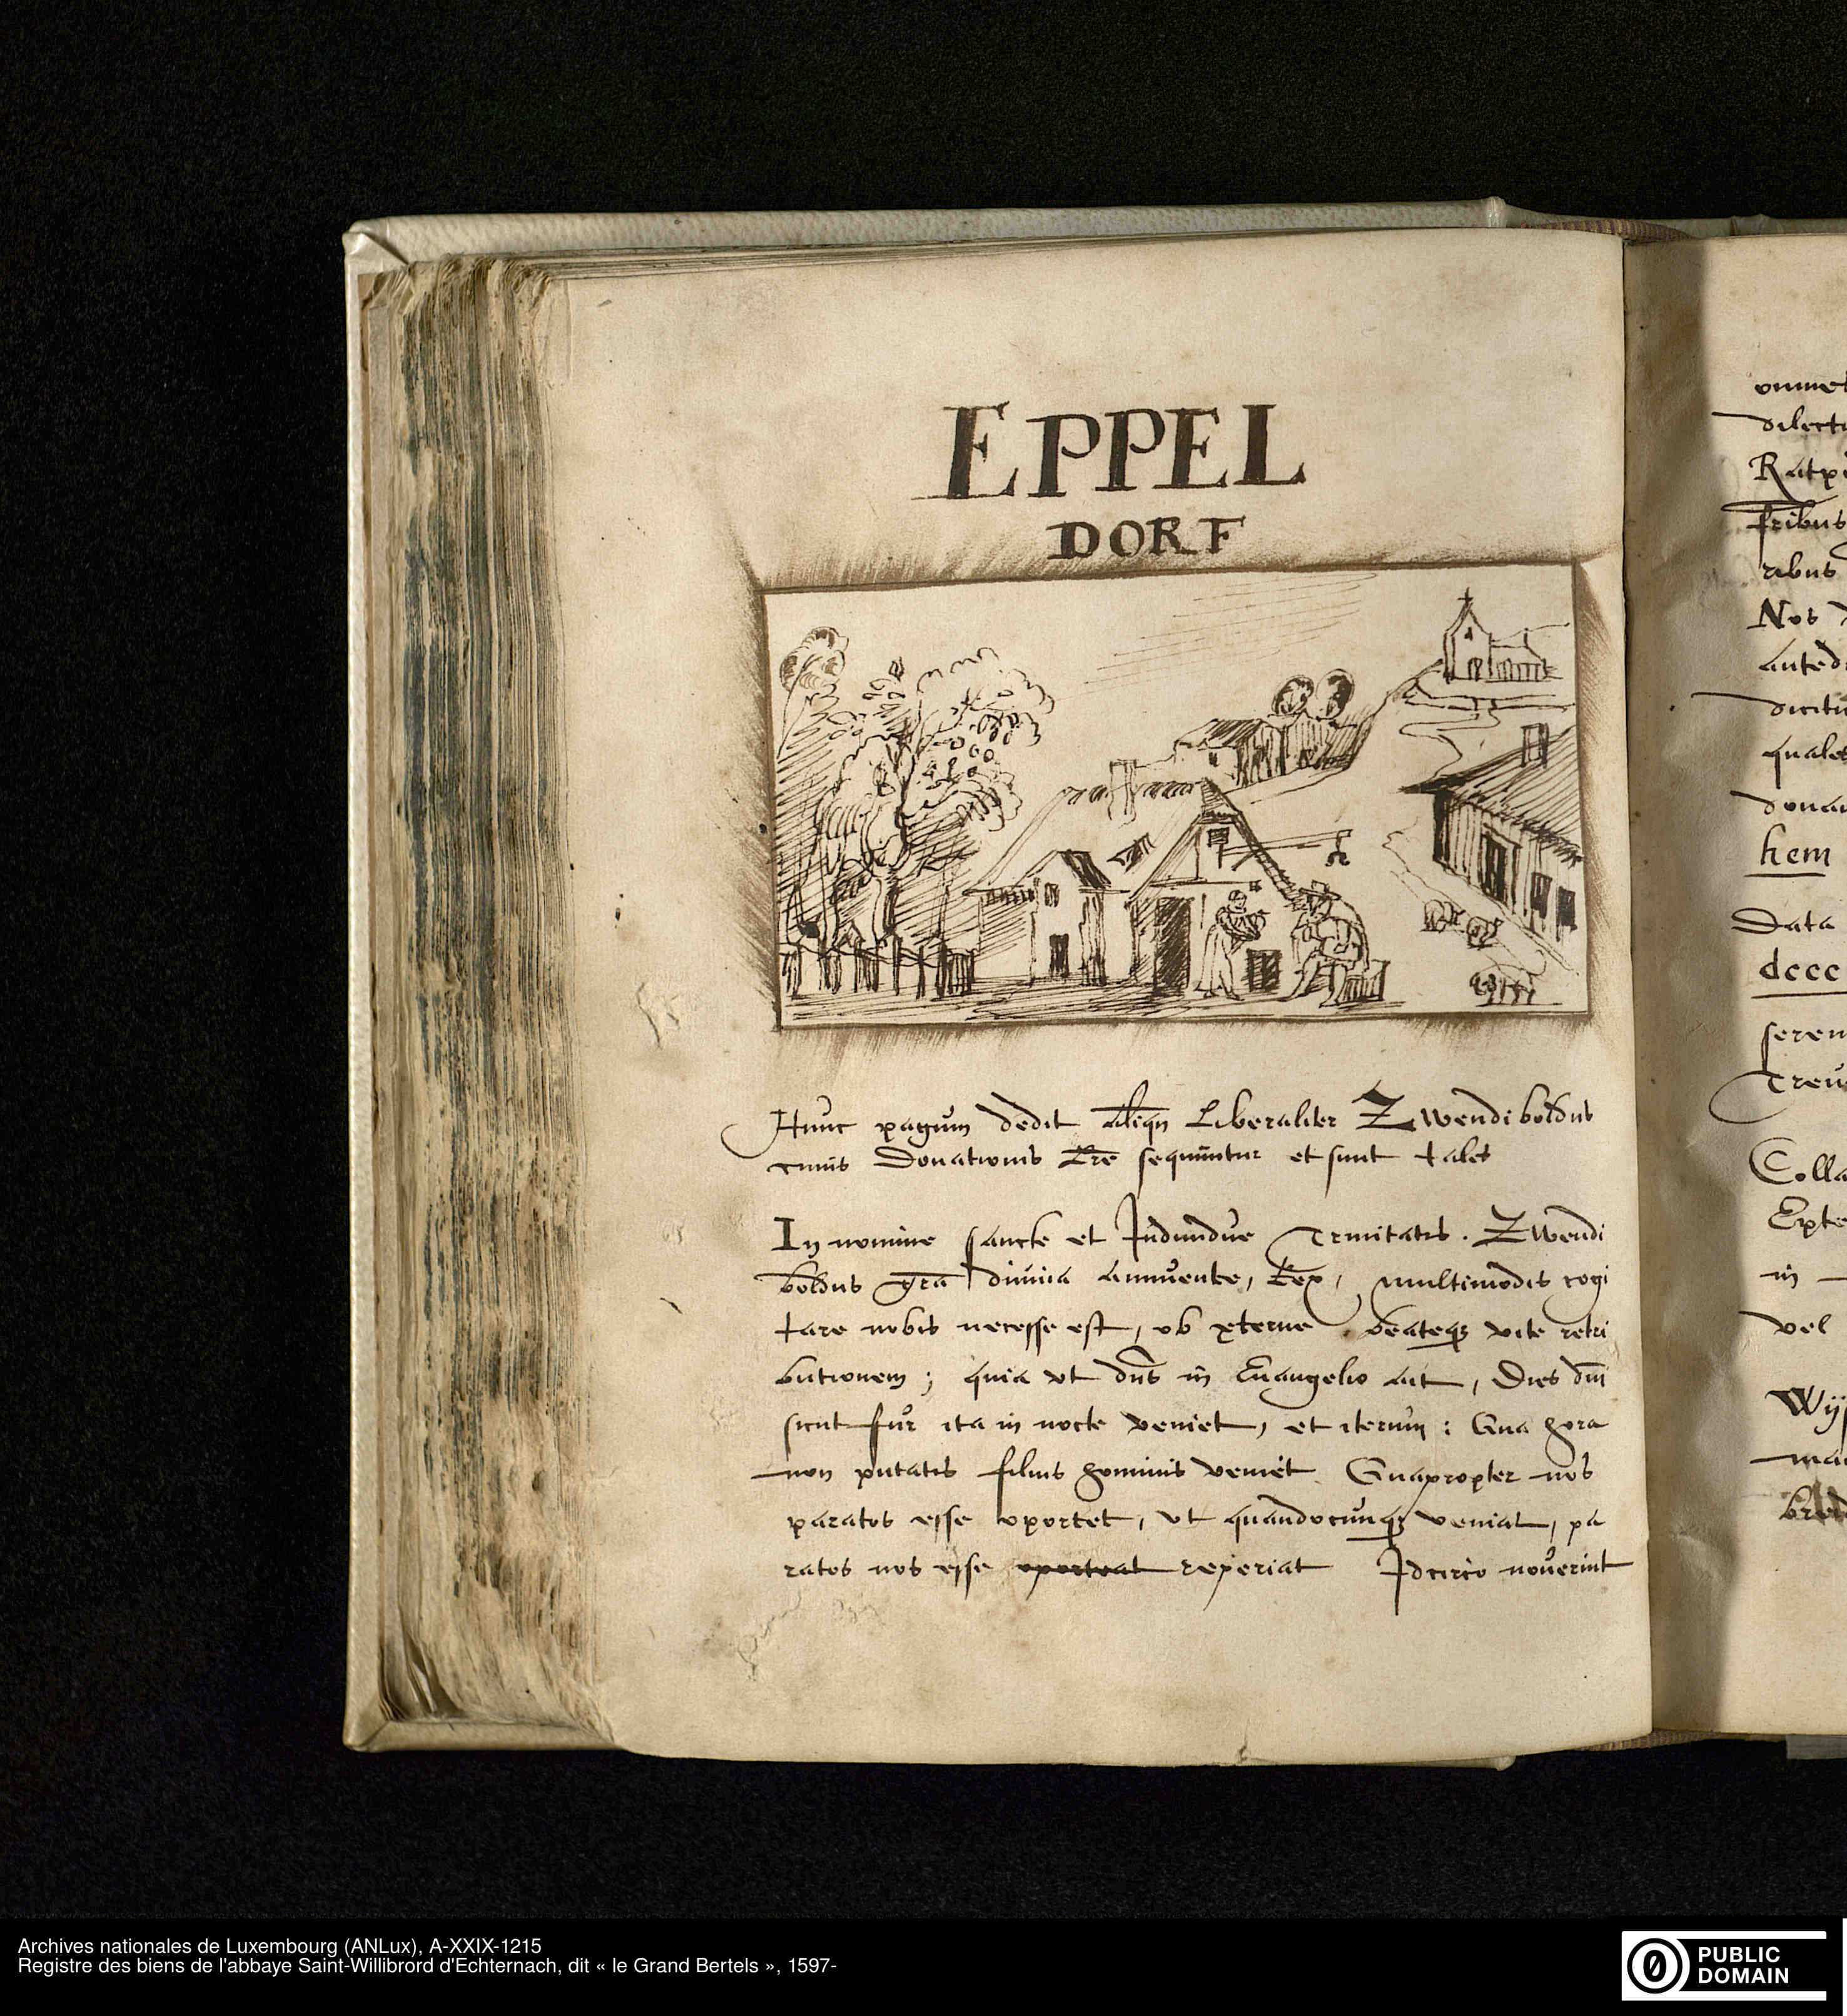 EPPEL
DORF
Hunc pagum dedit aliqn Liberaliter Zwendiboldus
cuius Donationis Lre sequuntur et sunt tales
In nomine sancte et Indiuidue Trinitatis. Zwendi
boldus gra diuina annuente, Rex, multimodis cogi
tare nobis necesse est, ob eterne beateq; vite retri
butionem; quia vt dns in Euangelio ait, Dies dni
sicut fur ita in nocte veniet, et iterum: Qua hora
non putatis filius hominis veniet Quapropter nos
paratos esse oportet, vt quandocunq; veniat, pa
ratos nos esse oporteat reperiat Idcirco nouerint
dilect
fribus
ribus
Nos
anted
quales
dona
hem
Data
dccc
seren
Treu
Colla
Epte
in
vel
Archives nationales de Luxembourg (ANLux), A-XXIX-1215
Registre des biens de l'abbaye Saint-Willibrord d'Echternach, dit « le Grand Bertels », 1597-
PUBLIC
DOMAIN